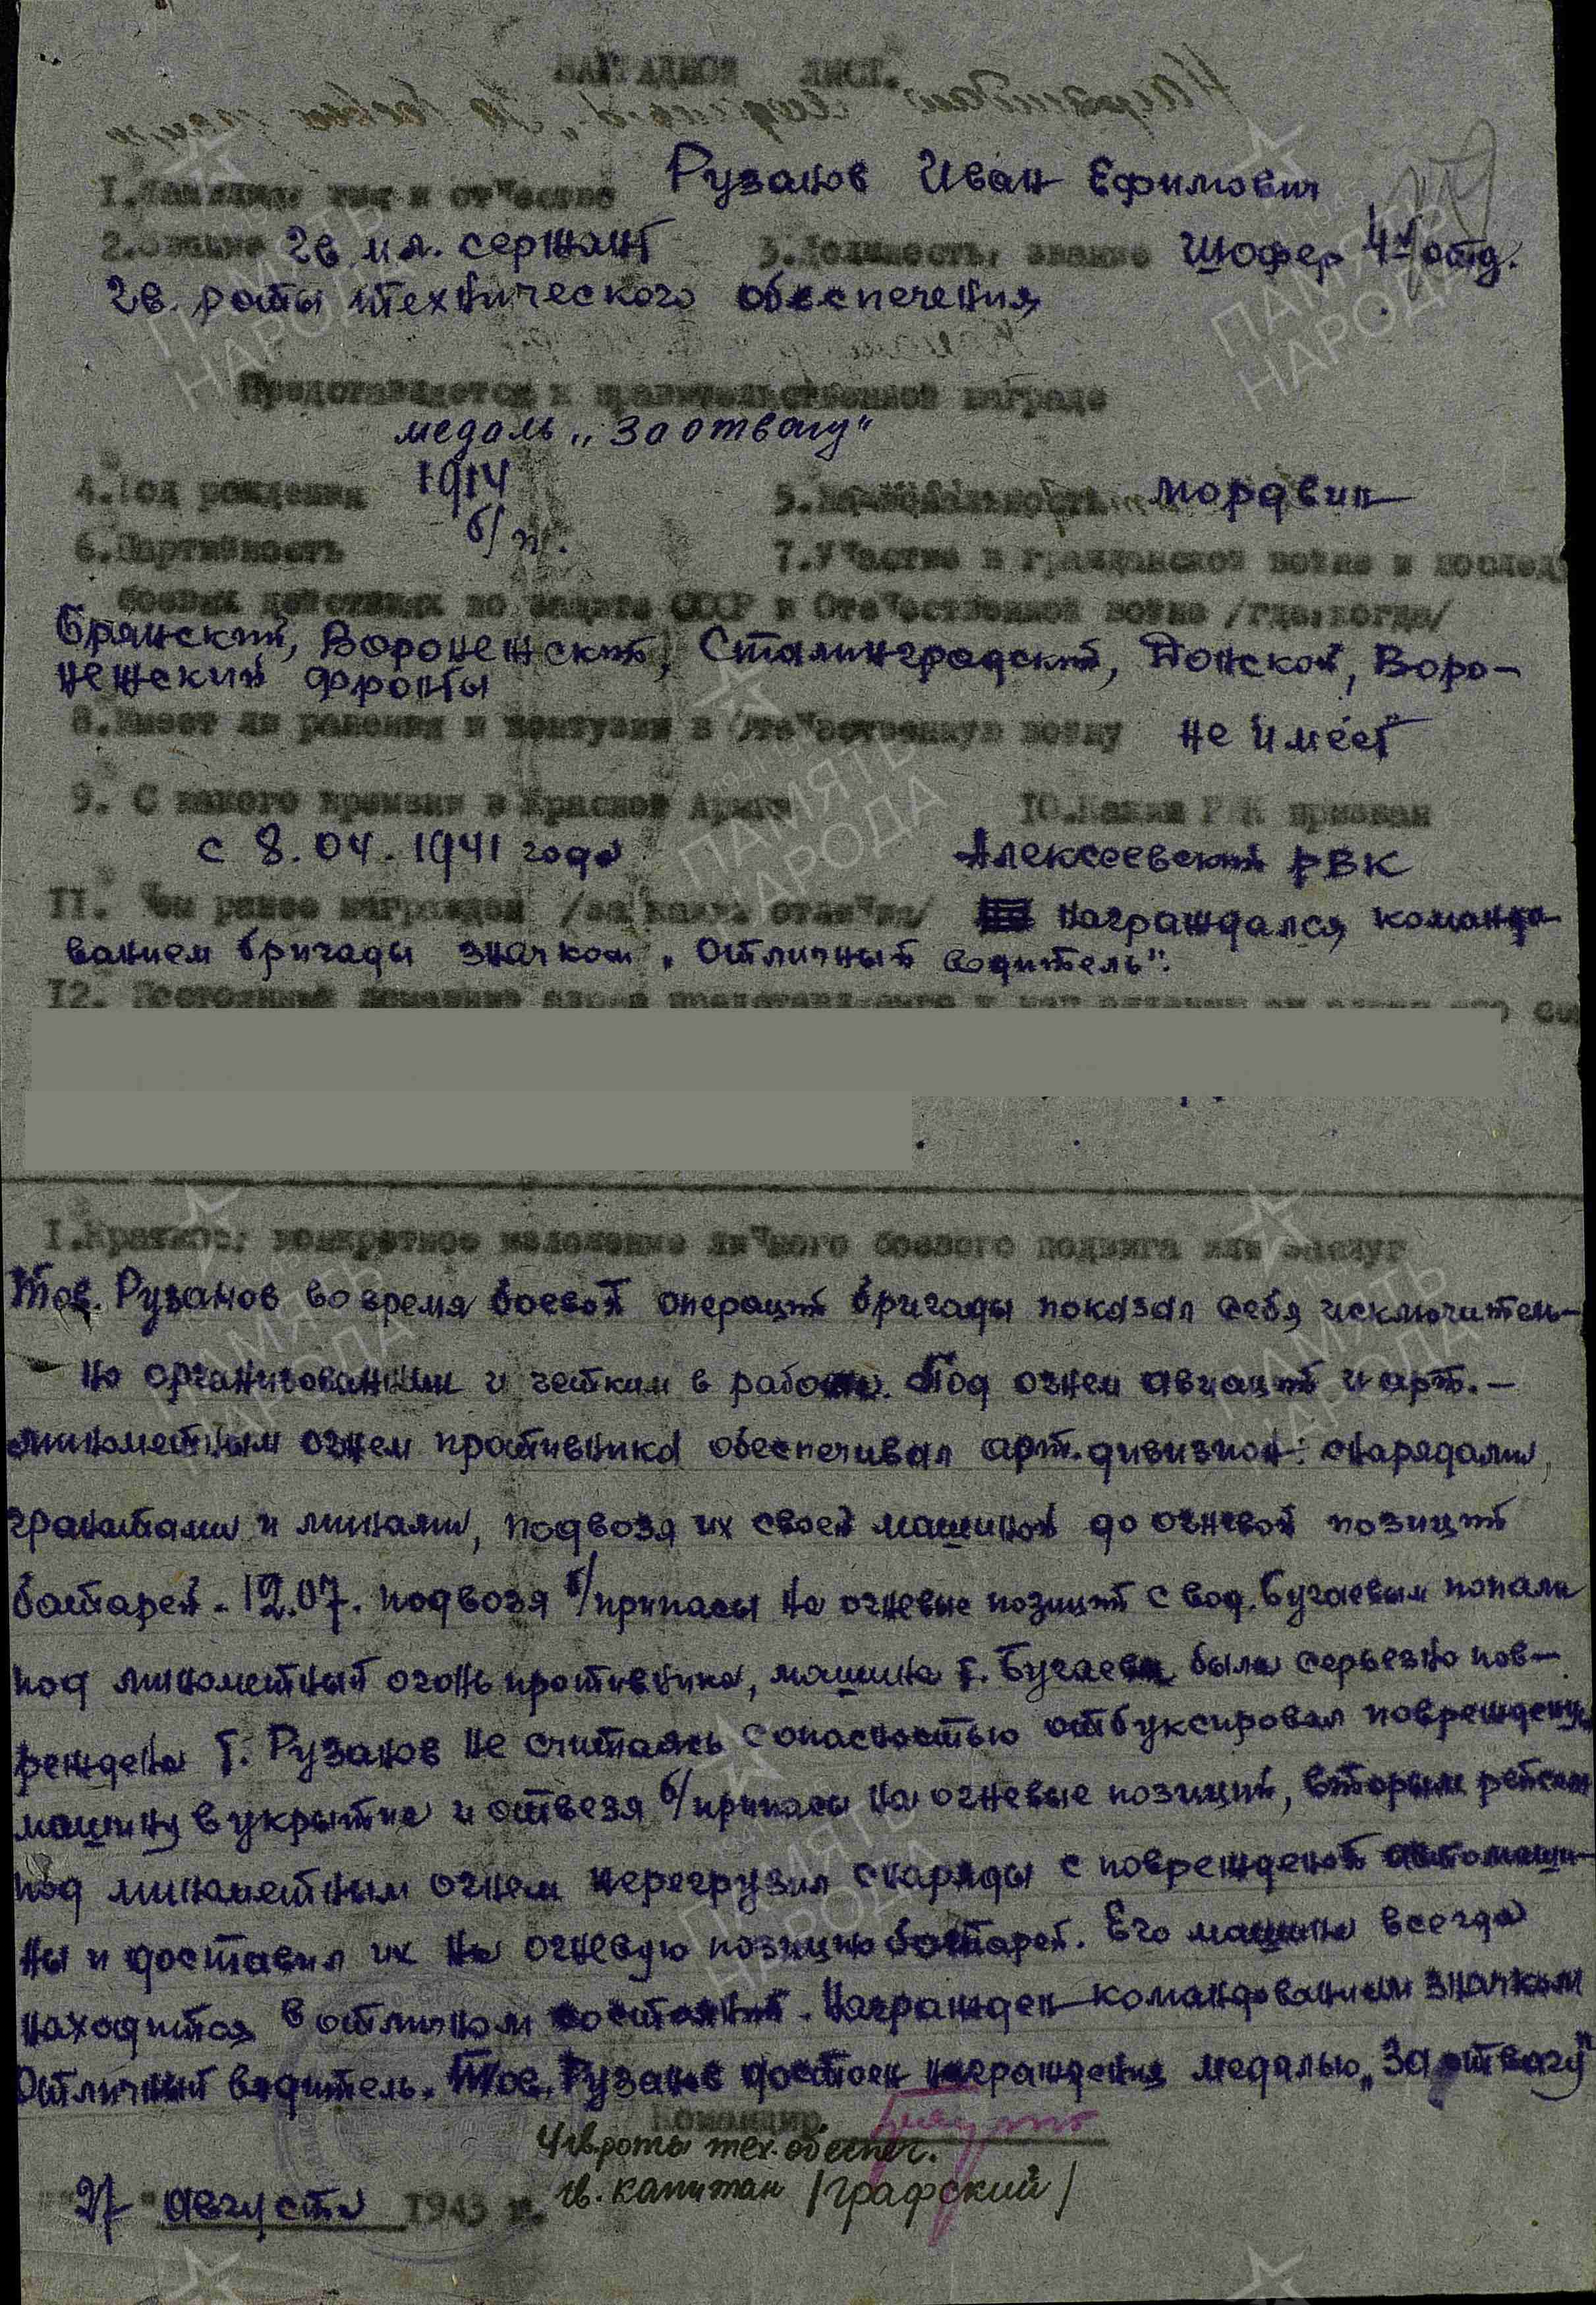 НАГРАДНОЙ ЛИСТ.
1. Фамилия, имя и отчество Рузанов Иван Ефимович
2. Звание Гв мл. сержант 3. Должность, звание Шофер 4 отд.
Гв. роты технического обеспечения
Представляется к правительственной награде
медаль „За отвагу"
4. Год рождения 1914 5. Национальность мордвин
6. Партийность б/п. 7. Участие в гражданской войне и послед
боевых действиях по защите СССР и Отечественной войне /где, когда/
Брянский, Воронежский, Сталинградский, Донской, Воро-
нежский фронты
8. Имеет ли ранения и контузии в Отечественную войну не имеет
9. С какого времени в Красной Армии 10. Каким РВК призван
с 8.04.1941 года Алексеевский РВК
11. Чем ранее награжден /за какие отличия/ награждался командо-
ванием бригады значком „Отличный водитель".
12. Постоянный домашний адрес
1. Краткое, конкретное изложение личного боевого подвига или заслуг
Тов. Рузанов во время боевой операции бригады показал себя исключитель-
но организованным и четким в работе. Под огнем авиации и арт.-
минометным огнем противника обеспечивал арт. дивизион: снарядами,
гранатами и минами, подвозя их своей машиной до огневой позиции
батарей. 12.07. подвозя б/припасы на огневые позиции с вод. Бугаевым попали
под минометный огонь противника, машина т. Бугаева была серьезно пов-
реждена т. Рузанов не считаясь с опасностью отбуксировал поврежденную
машину в укрытие и отвезя б/припасы на огневые позиции, вторым рейсом
под минометным огнем перегрузил снаряды с поврежденой автомаши-
ны и доставил их на огневую позицию батарей. Его машина всегда
находится в отличном состоянии. Награжден командованием значком
Отличный водитель. Тов. Рузанов достоен награждения медалью „За отвагу"
Командир
4 гв. роты тех. обеспеч.
гв. капитан /Графский/
"27" августа 1943 г.
ПАМЯТЬ НАРОДА